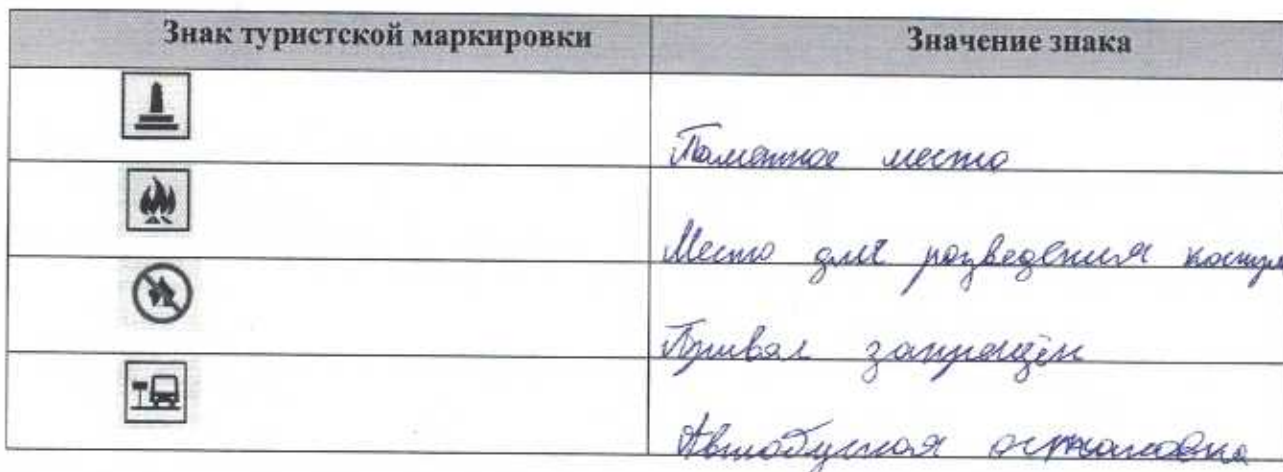 Знак туристской маркировки Значение знака
Памятное место
Место для разведения костра
Привал запрещён
Автобусная остановка